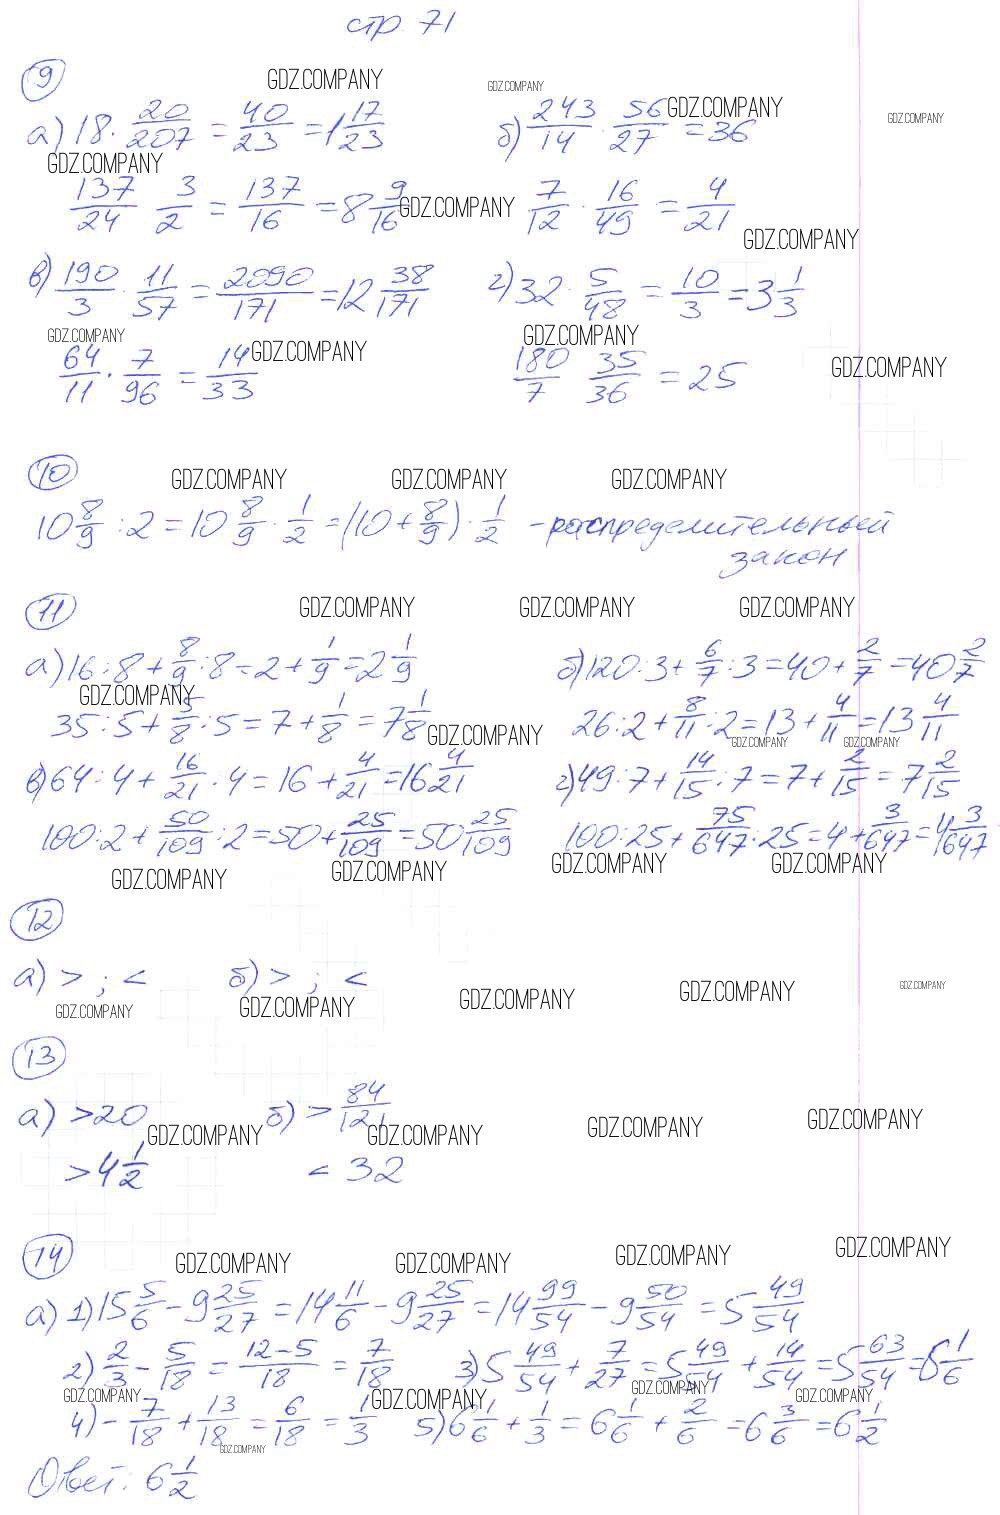 стр. 71
GDZ.COMPANY GDZ.COMPANY
9
GDZ.COMPANY GDZ.COMPANY
а) 18 · 20/207 = 40/23 = 1 17/23 б) 243/14 · 56/27 = 36
GDZ.COMPANY
137/24 3/2 = 137/16 = 8 9/16 7/12 · 16/49 = 4/21
GDZ.COMPANY GDZ.COMPANY
в) 190/3 · 11/57 = 2090/171 = 12 38/171 г) 32 · 5/48 = 10/3 = 3 1/3
GDZ.COMPANY GDZ.COMPANY
64/11 · 7/96 = 14/33 180/7 35/36 = 25
GDZ.COMPANY GDZ.COMPANY
10
GDZ.COMPANY GDZ.COMPANY GDZ.COMPANY
10 8/9 : 2 = 10 8/9 · 1/2 = (10 + 8/9) · 1/2 - распределительный
закон
11
GDZ.COMPANY GDZ.COMPANY GDZ.COMPANY
а) 16 : 8 + 8/9 : 8 = 2 + 1/9 = 2 1/9 б) 120 : 3 + 6/7 : 3 = 40 + 2/7 = 40 2/7
GDZ.COMPANY
35 : 5 + 5/8 : 5 = 7 + 1/8 = 7 1/8 26 : 2 + 8/11 : 2 = 13 + 4/11 = 13 4/11
GDZ.COMPANY GDZ.COMPANY GDZ.COMPANY
в) 64 : 4 + 16/21 : 4 = 16 + 4/21 = 16 4/21 г) 49 : 7 + 14/15 : 7 = 7 + 2/15 = 7 2/15
100 : 2 + 50/109 : 2 = 50 + 25/109 = 50 25/109 100 : 25 + 75/647 : 25 = 4 + 3/647 = 4 3/647
GDZ.COMPANY GDZ.COMPANY GDZ.COMPANY GDZ.COMPANY
12
а) > ; < б) > ; <
GDZ.COMPANY GDZ.COMPANY GDZ.COMPANY GDZ.COMPANY GDZ.COMPANY
13
а) > 20 б) > 84/121
GDZ.COMPANY GDZ.COMPANY GDZ.COMPANY GDZ.COMPANY
> 4 1/2 < 32
14
GDZ.COMPANY GDZ.COMPANY GDZ.COMPANY GDZ.COMPANY
а) 1) 15 5/6 - 9 25/27 = 14 11/6 - 9 25/27 = 14 99/54 - 9 50/54 = 5 49/54
2) 2/3 - 5/18 = 12-5/18 = 7/18 3) 5 49/54 + 7/27 = 5 49/54 + 14/54 = 5 63/54 = 6 1/6
GDZ.COMPANY GDZ.COMPANY GDZ.COMPANY GDZ.COMPANY
4) - 7/18 + 13/18 = 6/18 = 1/3 5) 6 1/6 + 1/3 = 6 1/6 + 2/6 = 6 3/6 = 6 1/2
GDZ.COMPANY
Ответ: 6 1/2